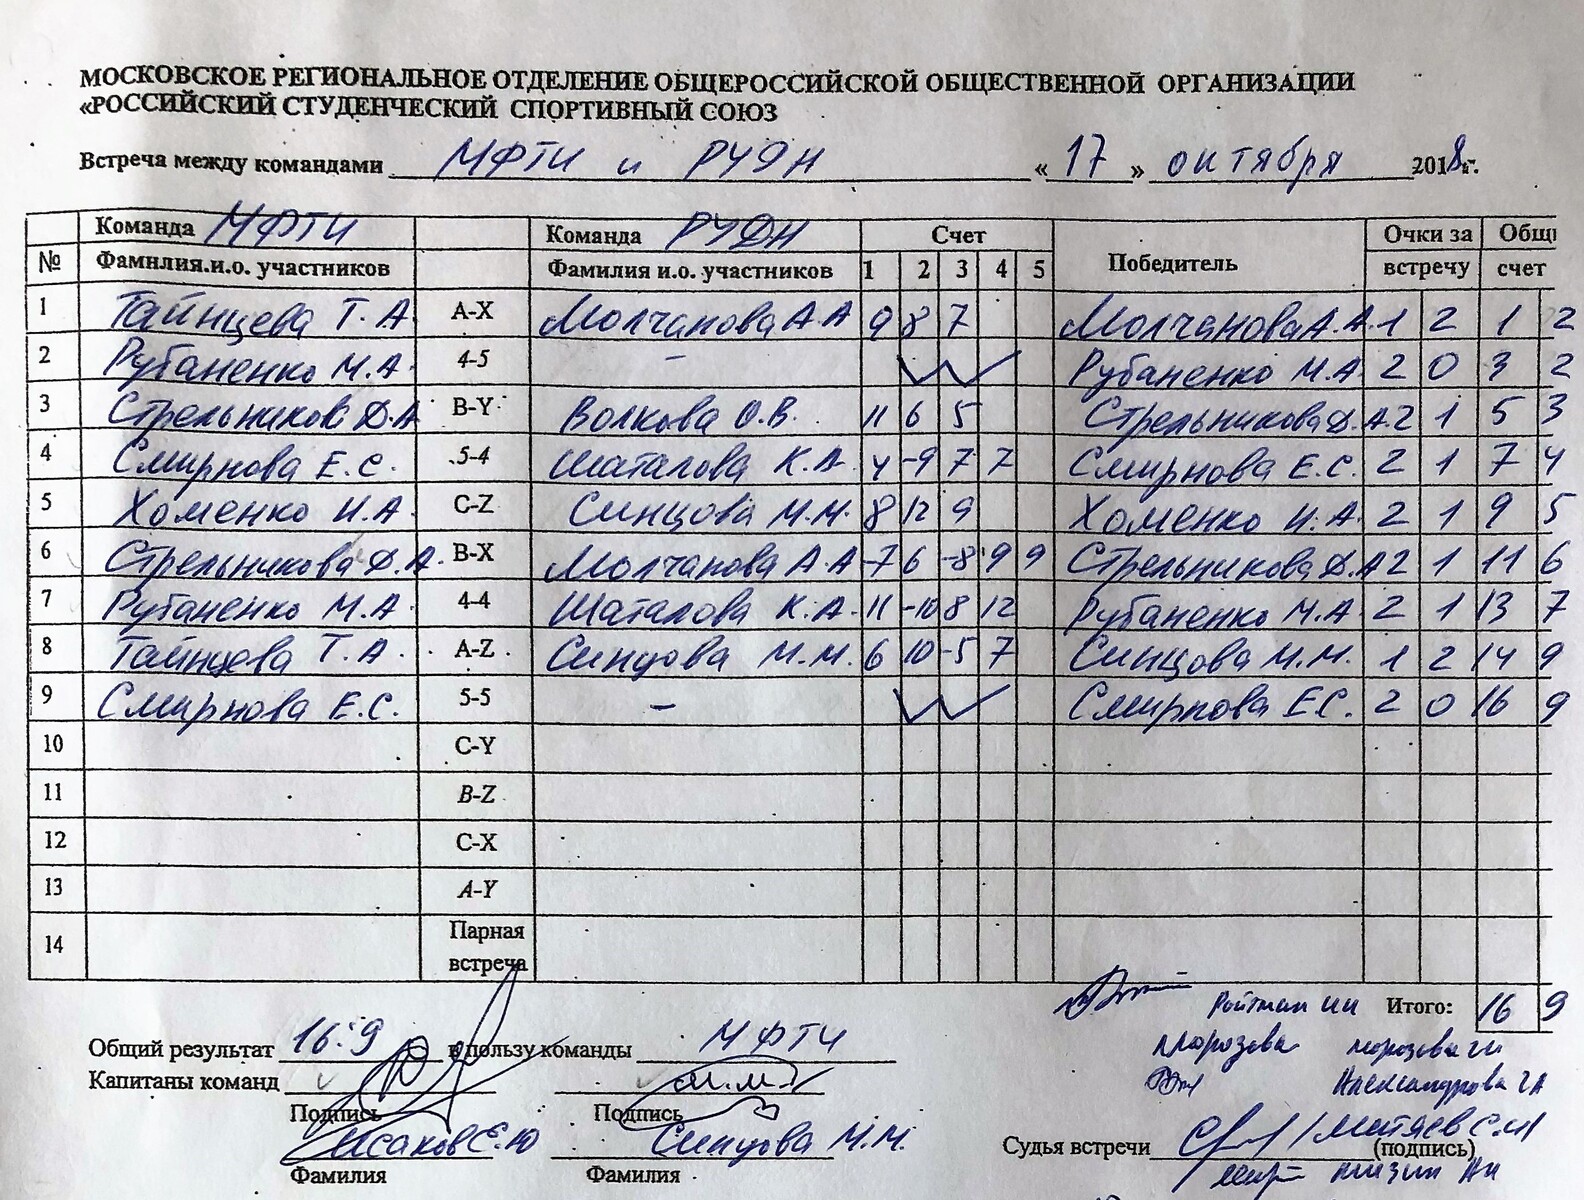 МОСКОВСКОЕ РЕГИОНАЛЬНОЕ ОТДЕЛЕНИЕ ОБЩЕРОССИЙСКОЙ ОБЩЕСТВЕННОЙ ОРГАНИЗАЦИИ
«РОССИЙСКИЙ СТУДЕНЧЕСКИЙ СПОРТИВНЫЙ СОЮЗ
Встреча между командами МФТИ и РУДН «17» октября 2018г.
Команда МФТИ Команда РУДН Счет Очки за Общ
№ Фамилия.и.о. участников Фамилия и.о. участников 1 2 3 4 5 Победитель встречу счет
1 Тайнцева Т. А. А-Х Молчанова А.А 9 8 7 Молчанова А.А. 1 2 1 2
2 Рубаненко М.А. 4-5 – Рубаненко М.А. 2 0 3 2
3 Стрельников Д.А В-Y Волкова О.В. 11 6 5 Стрельникова Д.А. 2 1 5 3
4 Смирнова Е.С. 5-4 Шаталова К.А. 4 -9 7 7 Смирнова Е.С. 2 1 7 4
5 Хоменко И.А. C-Z Синцова М.М. 8 12 9 Хоменко И.А. 2 1 9 5
6 Стрельникова Д.А. В-Х Молчанова А.А -7 6 -8 9 9 Стрельникова Д.А 2 1 11 6
7 Рубаненко М.А. 4-4 Шаталова К.А. 11 -10 8 12 Рубаненко М.А. 2 1 13 7
8 Тайнцева Т.А. A-Z Синцова М.М. 6 10 -5 7 Синцова М.М. 1 2 14 9
9 Смирнова Е.С. 5-5 – Смирнова Е.С. 2 0 16 9
10 C-Y
11 B-Z
12 С-Х
13 A-Y
14 Парная
встреча
Ройтман ИИ Итого: 16 9
Общий результат 16:9 в пользу команды МФТИ
Морозова Морозова ГИ
Капитаны команд
Александрова ГА
Подпись Подпись
Исаков Е.Ю Синцова М.М.
Судья встречи Митяев С.И (подпись)
Фамилия Фамилия